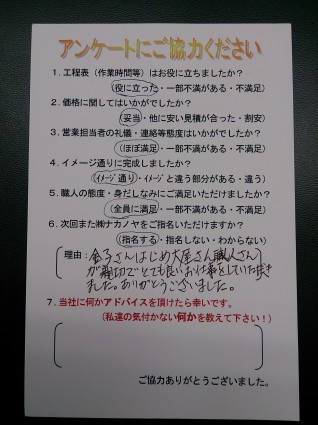 アンケートにご協力ください
1．工程表（作業時間等）はお役に立ちましたか？
（役に立った・一部不満がある・不満足）
2．価格に関してはいかがでしたか？
（妥当・他に安い見積が合った・割安）
3．営業担当者の礼儀・連絡等態度はいかがでしたか？
（ほぼ満足・一部不満がある・不満足）
4．イメージ通りに完成しましたか？
（イメージ通り・イメージと違う部分がある・違う）
5．職人の態度・身だしなみにご満足いただけましたか？
（全員に満足・一部不満がある・不満足）
6．次回また㈱ナカノヤをご指名いただけますか？
（指名する・指名しない・わからない）
理由：金子さんはじめ大屋さん職人さん
が親切でとても良いお仕事をしていただき
ました。ありがとうございました。
7．当社に何かアドバイスを頂けたら幸いです。
（私達の気付かない何かを教えて下さい！）
ご協力ありがとうございました。